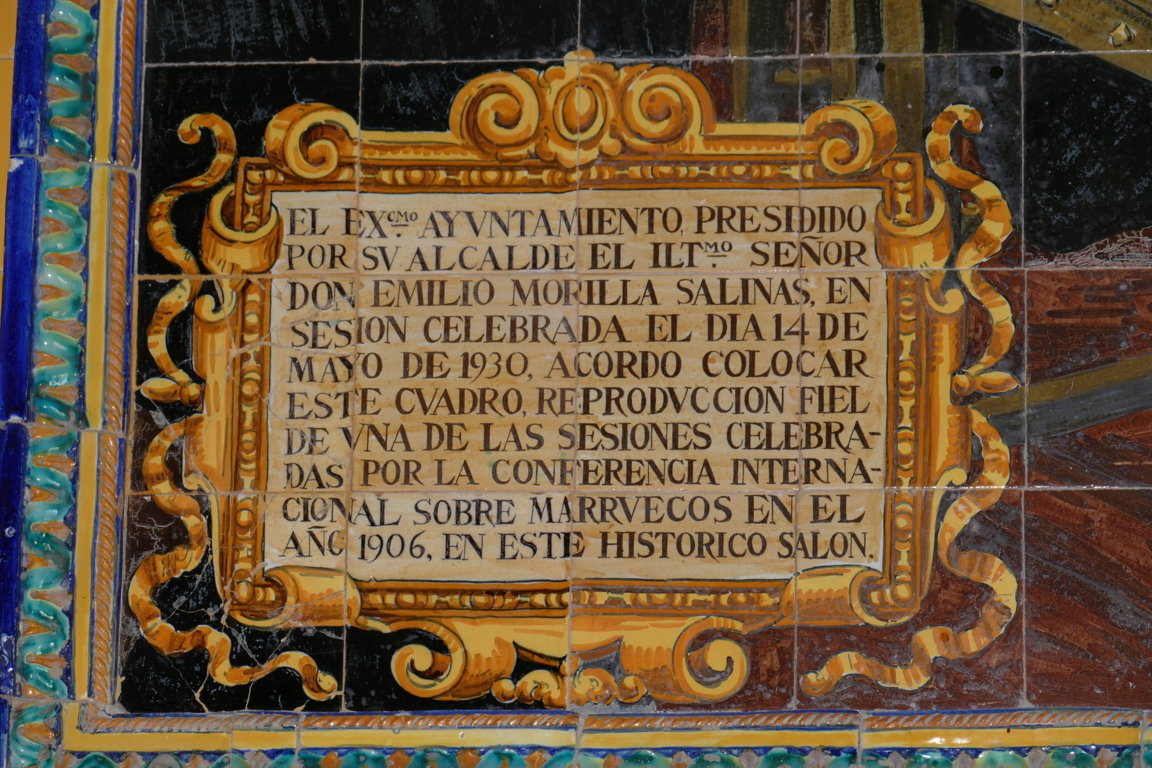 EL EXCMO. AYVNTAMIENTO, PRESIDIDO
POR SV ALCALDE EL ILTMO. SEÑOR
DON EMILIO MORILLA SALINAS, EN
SESION CELEBRADA EL DIA 14 DE
MAYO DE 1930, ACORDO COLOCAR
ESTE CVADRO, REPRODVCCION FIEL
DE VNA DE LAS SESIONES CELEBRA-
DAS POR LA CONFERENCIA INTERNA-
CIONAL SOBRE MARRVECOS EN EL
AÑO 1906, EN ESTE HISTORICO SALON.